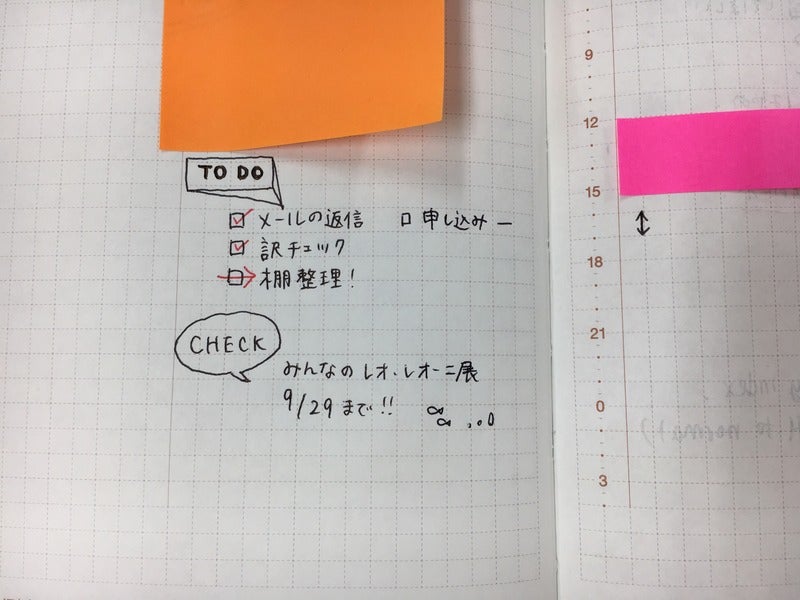 TO DO
☑ メールの返信 □ 申し込み ー
☑ 訳チェック
□ 棚整理!
CHECK
みんなのレオ・レオーニ展
9/29まで!!
9
12
15
18
21
0
3